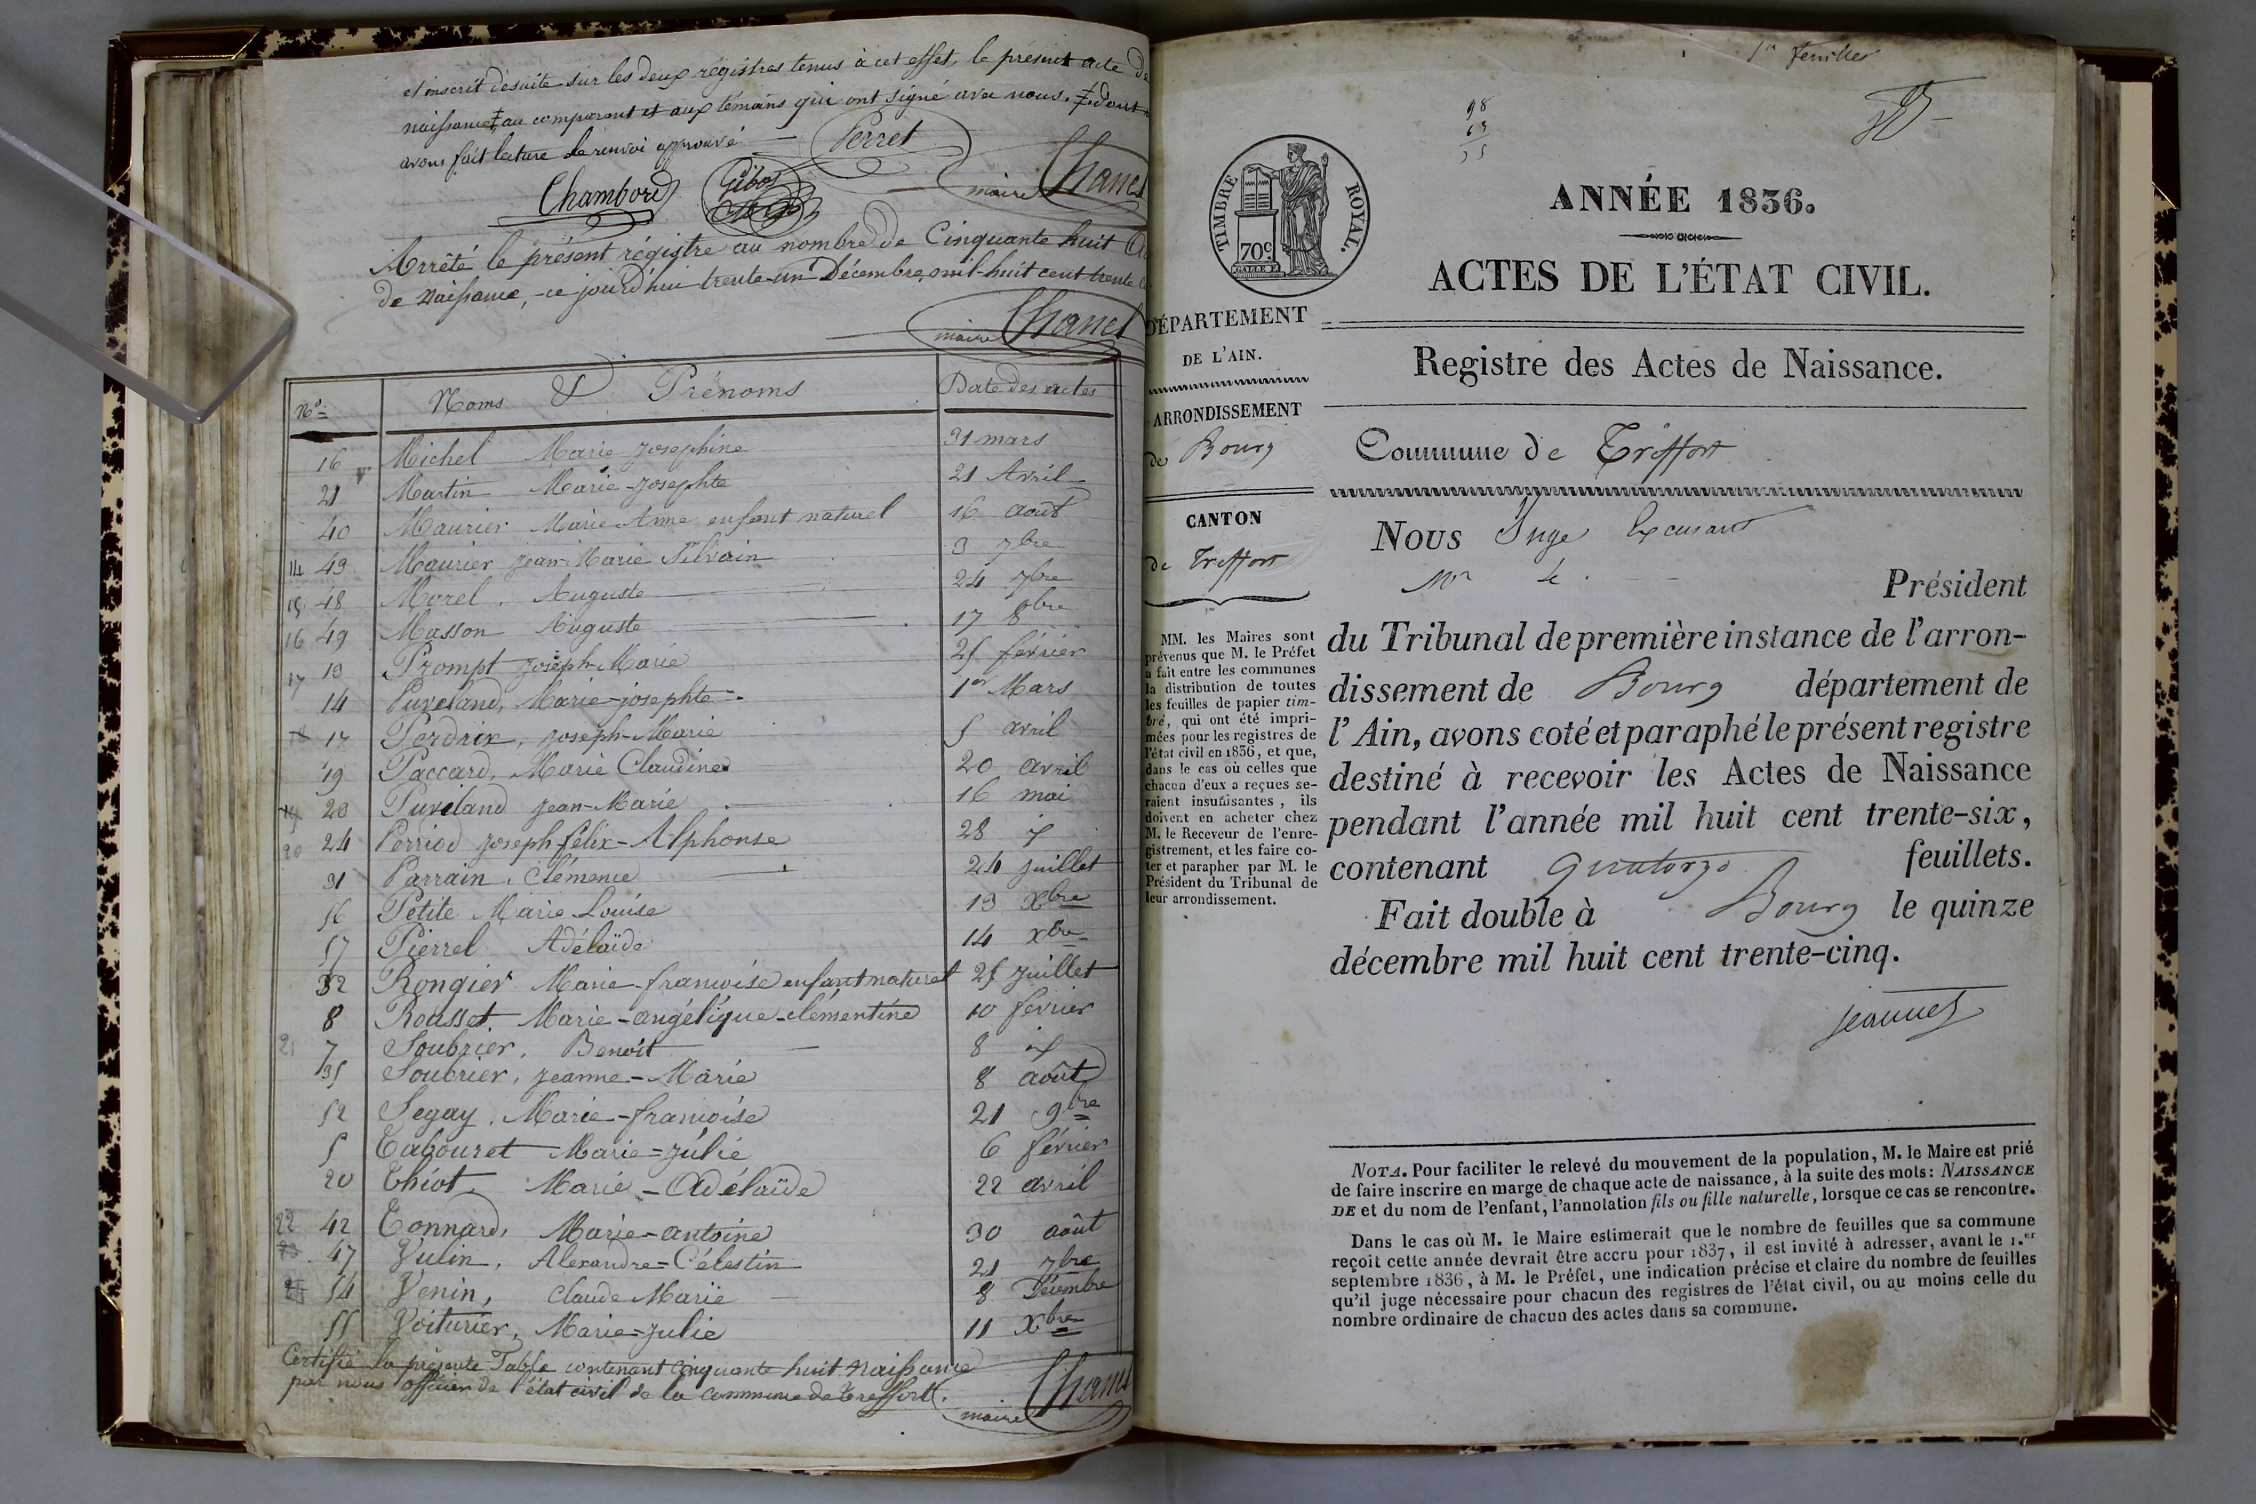 et inscrit desuite sur les deux régistres tenus à cet effet, le présent acte de
naissance ‡ au comparant et aux témoins qui ont signé avec nous. ‡ dont
avons fait lecture le renvoi approuvé — Perret
Chambord Gibos maire Chanel
Arrêté le présent régistre au nombre de Cinquante huit
de Naissance, ce jourd'hui trente-un Décembre, mil-huit cent trente
maire Chanel
Nos Noms & Prénoms Date des actes
16 Michel Marie Josephine 31 mars
21 Martin Marie-Josephte 21 Avril
40 Maurier Marie-Anne enfant naturel 16 août
14 43 Maurier Jean-Marie Silvain 3 7bre
15 48 Morel, Auguste 24 7bre
16 49 Masson Auguste 17 8bre
17 13 Prompt Joseph-Marie 25 février
14 Puveland, Marie-josephte 1er Mars
18 17 Perdrix, Joseph-Marie 5 avril
19 Paccard, Marie Claudine 20 avril
19 23 Puveland Jean-Marie 16 mai
20 24 Perriod Joseph-félix-Alphonse 28 id
31 Parrain, Clémence 24 juillet
56 Petite Marie Louise 13 Xbre
57 Pierrel Adélaïde 14 Xbre
32 Rongier Marie-françoise enfant naturel 25 juillet
8 Rousset Marie-angélique-clémentine 10 fevrier
21 7 Soubrier, Benoît 8 id
35 Soubrier, Jeanne-Marie 8 août
52 Segay, Marie-françoise 21 9bre
5 Tabouret Marie=Julie 6 février
20 Thiot, Marie-Adélaïde 22 avril
22 42 Tonnard, Marie-antoine 30 août
23 47 Vulin, Alexandre=Célestin 21 7bre
54 Venin, Claude Marie 8 Décembre
55 Voiturier, Marie=Julie 11 Xbre
Certifié la présente Table contenant cinquante huit Naissance
par nous officier de l'état civil de la commune de Treffort.
maire Chanel
1er feuillet
TIMBRE ROYAL.
70c.
ANNÉE 1836.
ACTES DE L'ÉTAT CIVIL.
DÉPARTEMENT
DE L'AIN.
ARRONDISSEMENT
de Bourg
CANTON
de Treffort
MM. les Maires sont
prévenus que M. le Préfet
a fait entre les communes
la distribution de toutes
les feuilles de papier tim-
bré, qui ont été impri-
mées pour les registres de
l'état civil en 1836, et que,
dans le cas où celles que
chacun d'eux a reçues se-
raient insuffisantes, ils
doivent en acheter chez
M. le Receveur de l'enre-
gistrement, et les faire co-
ter et parapher par M. le
Président du Tribunal de
leur arrondissement.
Registre des Actes de Naissance.
Commune de Treffort
Nous Juge Excusant
Mr le Président
du Tribunal de première instance de l'arron-
dissement de Bourg département de
l'Ain, avons coté et paraphé le présent registre
destiné à recevoir les Actes de Naissance
pendant l'année mil huit cent trente-six,
contenant quatorze feuillets.
Fait double à Bourg le quinze
décembre mil huit cent trente-cinq.
jeannet
NOTA. Pour faciliter le relevé du mouvement de la population, M. le Maire est prié
de faire inscrire en marge de chaque acte de naissance, à la suite des mots: NAISSANCE
DE et du nom de l'enfant, l'annotation fils ou fille naturelle, lorsque ce cas se rencontre.
Dans le cas où M. le Maire estimerait que le nombre de feuilles que sa commune
reçoit cette année devrait être accru pour 1837, il est invité à adresser, avant le 1.er
septembre 1836, à M. le Préfet, une indication précise et claire du nombre de feuilles
qu'il juge nécessaire pour chacun des registres de l'état civil, ou au moins celle du
nombre ordinaire de chacun des actes dans sa commune.